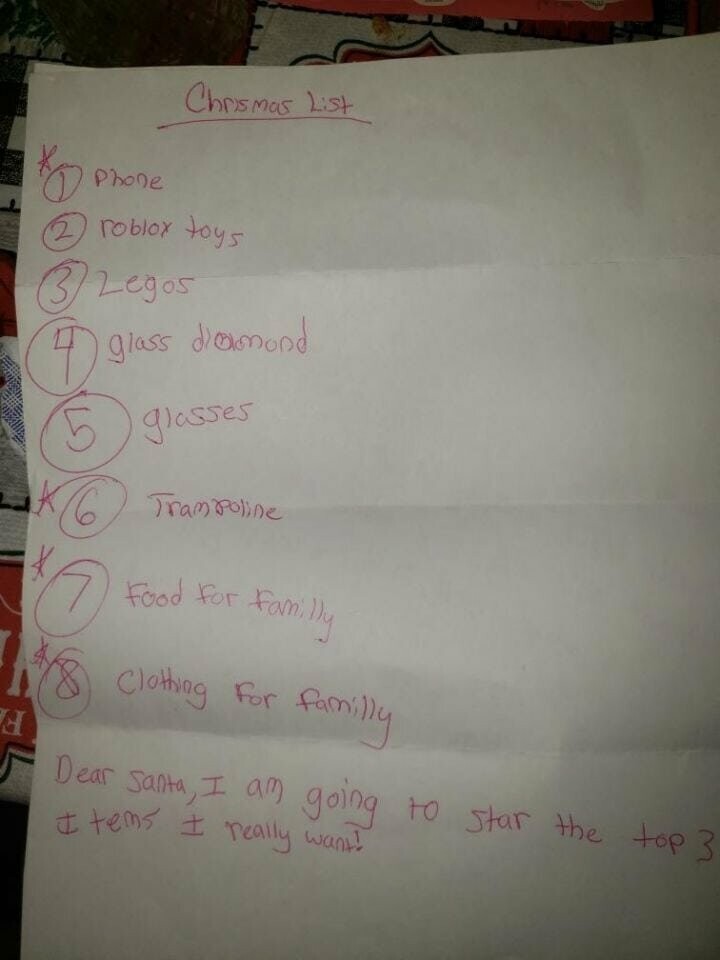 Chrismas List
* 1 Phone
2 roblox toys
3 Legos
4 glass diamond
5 glasses
* 6 Trampoline
* 7 Food For Familly
* 8 Clothing For familly
Dear Santa, I am going to star the top 3
Items I really want!